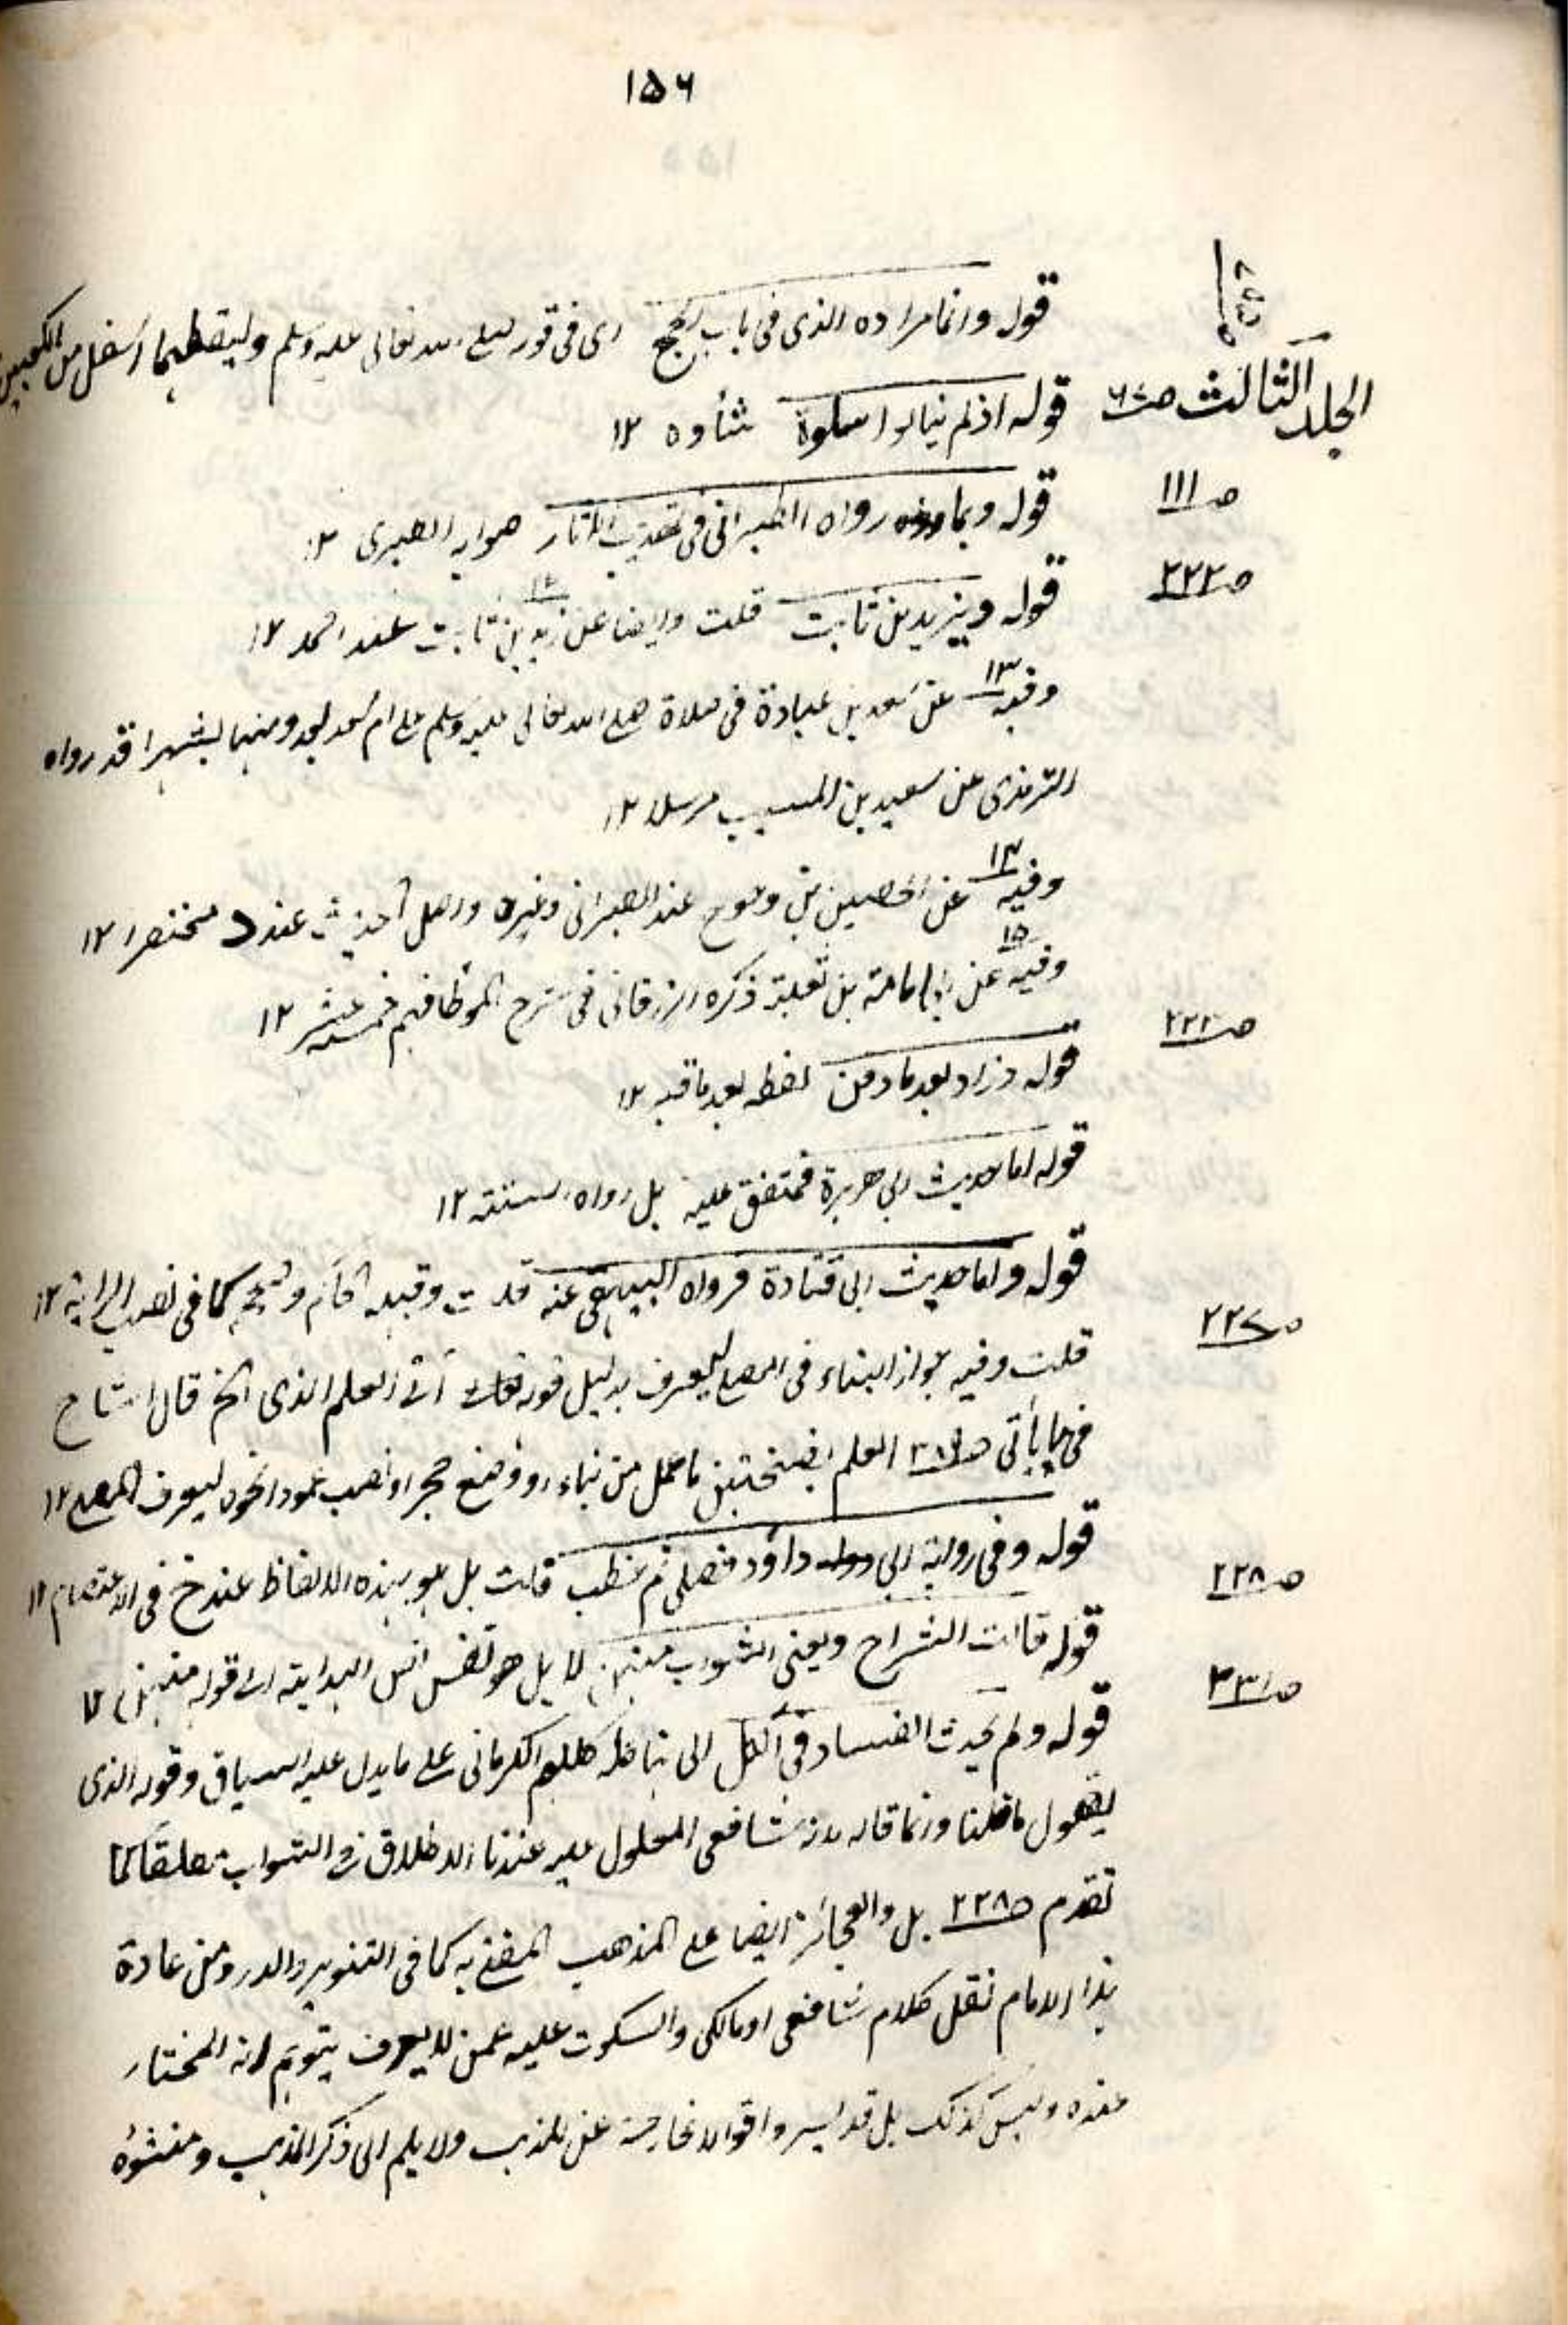 ١٥٦
قوله وانما مراده الذى فى باب الحج اى فى قوله صلى الله تعالى عليه وسلم وليقطعهما اسفل من الكعبين
الجلد الثالث صـ٦٧ قوله اذ لم ينالوا سلوة شأوه ١٢
صـ١١١ قوله وبما رواه الطبرانى فى تهذيب الآثار هو ابـ الطبرى ١٢
صـ٢٢٢ قوله ويزيد بن ثابت قلت وايضا عن زيد بن ثابت عند احمد ١٢
وفيه ١٣ عن سعد بن عبادة فى صلاة صلى الله تعالى عليه وسلم على ام سعد بعد دفنها بشهر قد رواه
الترمذى عن سعيد بن المسيب مرسلا ١٢
وفيه ١٤ عن الحصين بن وحوح عند الطبرانى وغيره واصل الحديث عند د مختصرا ١٢
وفيه ١٥ عن ابى امامة بن ثعلبة ذكره الزرقانى فى شرح الموطا فهم خمسة عشر ١٢
صـ٢٢٣ قوله وزاد بعد ما دفن لفظه بعد ما قبر ١٢
قوله اما حديث ابى هريرة فمتفق عليه بل رواه الستة ١٢
قوله واما حديث ابى قتادة فرواه البيهقى عنه قلت وقبله الحاكم وصححه كما فى نصب الراية ١٢
صـ٢٢٧ قلت وفيه جواز البناء فى المصلى ليعرف بدليل قوله اتى العلم الذى الخ قال الشارح
فى ما يأتى صـ العلم بفتحتين ما عمل من بناء او وضع حجر او نصب عمود ونحوه ليعرف المصلى ١٢
صـ٢٢٨ قوله وفى رواية ابى داؤد فصلى ثم خطب قلت بل هو بهذه الالفاظ عند خ فى الاعتصام ١٢
صـ٢٣١ قوله قالت الشراح ويعنى الشواب منهن لا بل هو نفس البداية الى قوله منهن ١٢
قوله ولم يحدث الفساد فى الكل الى كلام الكرمانى على ما يدل عليه السياق وقوله الذى
يقول ما قلنا وانما قاله لانه شافعى المعلول عليه عندنا الاطلاق فى الشواب مطلقا كما
تقدم صـ٢٢٨ بل والعجائز ايضا على المذهب المفتى به كما فى التنوير والدر ومن عادة
هذا الامام نقل كلام شافعى او مالكى والسكوت عليه فمن لا يعرف يتوهم انه المختار
عنده وليس كذلك بل قد يسرد اقوالا خارجة عن المذهب ولا يلم الى ذكر المذهب ومنشؤه